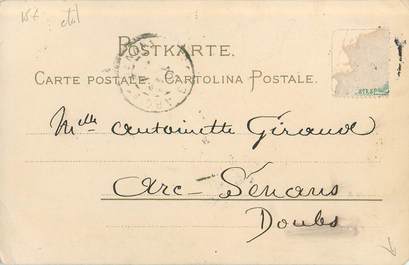 POSTKARTE.
CARTE POSTALE. CARTOLINA POSTALE.
Mlle Antoinette Giraud
Arc-Sénans
Doubs